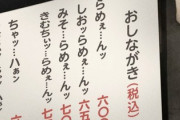 おしながき(税込)
らめぇ…んッ 六〇
しおッらめぇ…んッ 六五
みそ…らめぇ…んッ 七〇
きむちぃッ…らめぇ…んッ 七
ちゃッ…ハぁン